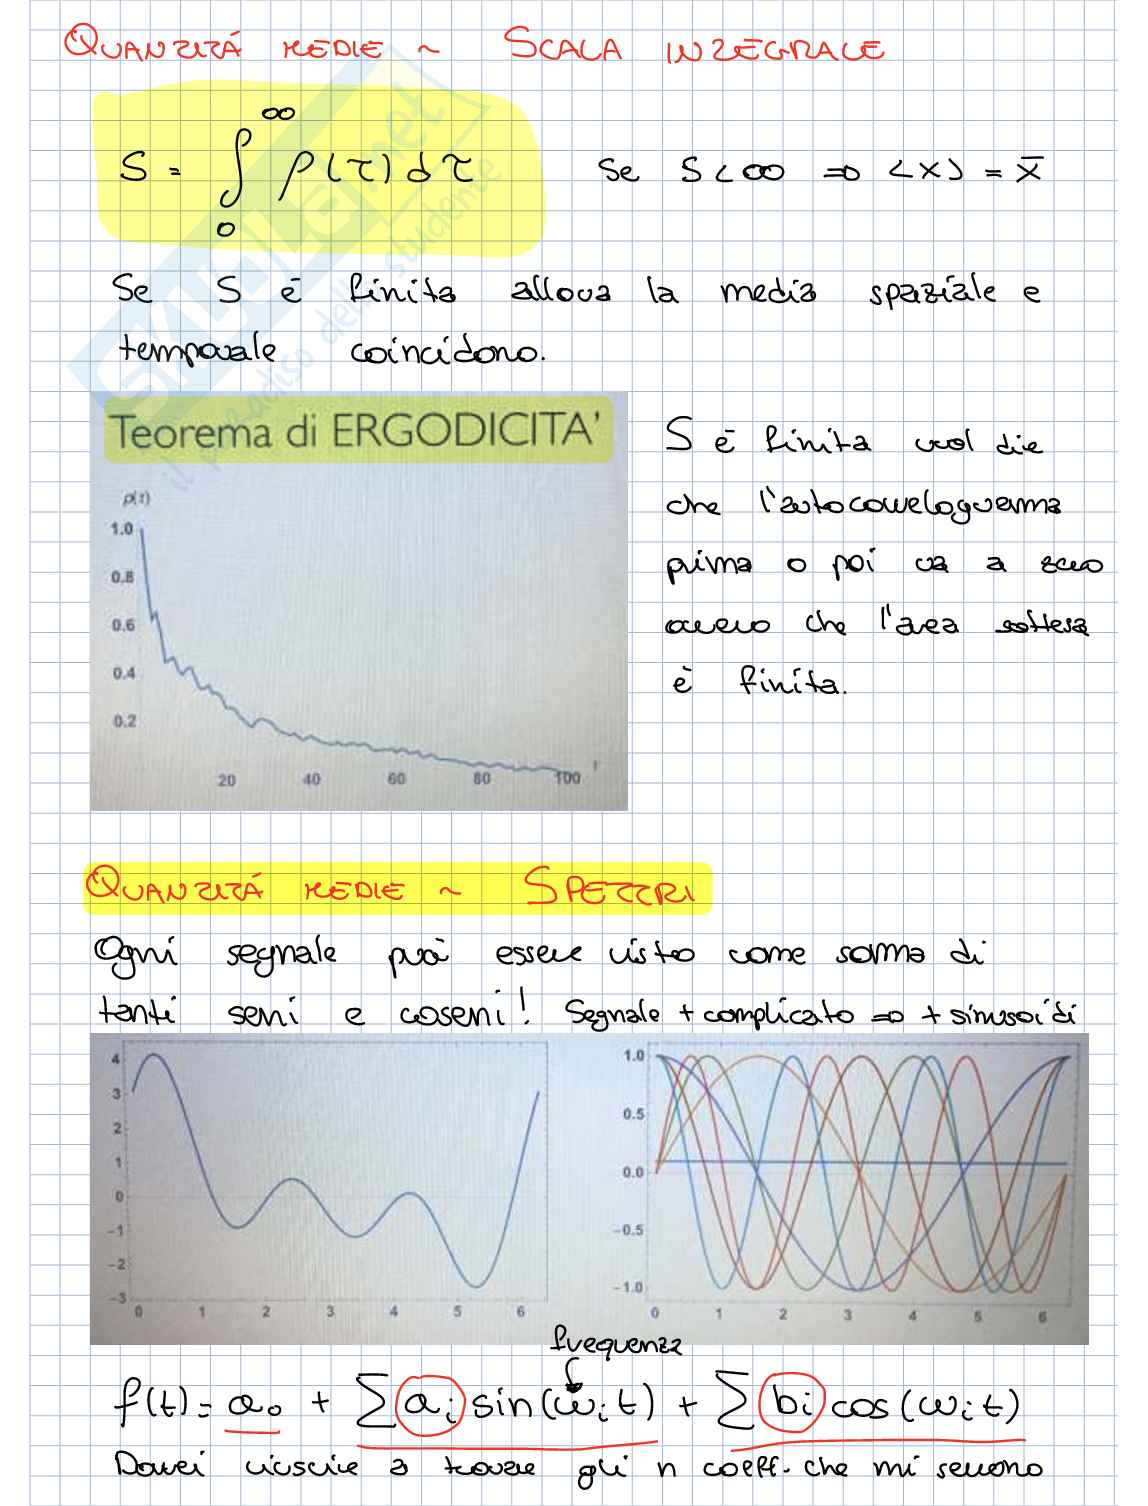 QUANTITÁ MEDIE ~ SCALA INTEGRALE
S = ∫₀^∞ ρ(τ) dτ   Se S < ∞ ⇒ <x> = x̄
Se S è finita allora la media spaziale e
temporale coincidono.
Teorema di ERGODICITA'
ρ(τ)
1.0
0.8
0.6
0.4
0.2
20 40 60 80 100 τ
S è finita vuol dire
che l'autocorrelogramma
prima o poi va a zero
ovvero che l'area sottesa
è finita.
QUANTITÁ MEDIE ~ SPETTRI
Ogni segnale può essere visto come somma di
tanti seni e coseni! Segnale + complicato ⇒ + sinusoidi
4
3
2
1
0
-1
-2
-3
0 1 2 3 4 5 6
1.0
0.5
0.0
-0.5
-1.0
0 1 2 3 4 5 6
frequenza
f(t) = a₀ + ∑ aᵢ sin(ωᵢt) + ∑ bᵢ cos(ωᵢt)
Dovrei riuscire a trovare gli n coeff. che mi servono
SKUOLA.net
il paradiso dello studente